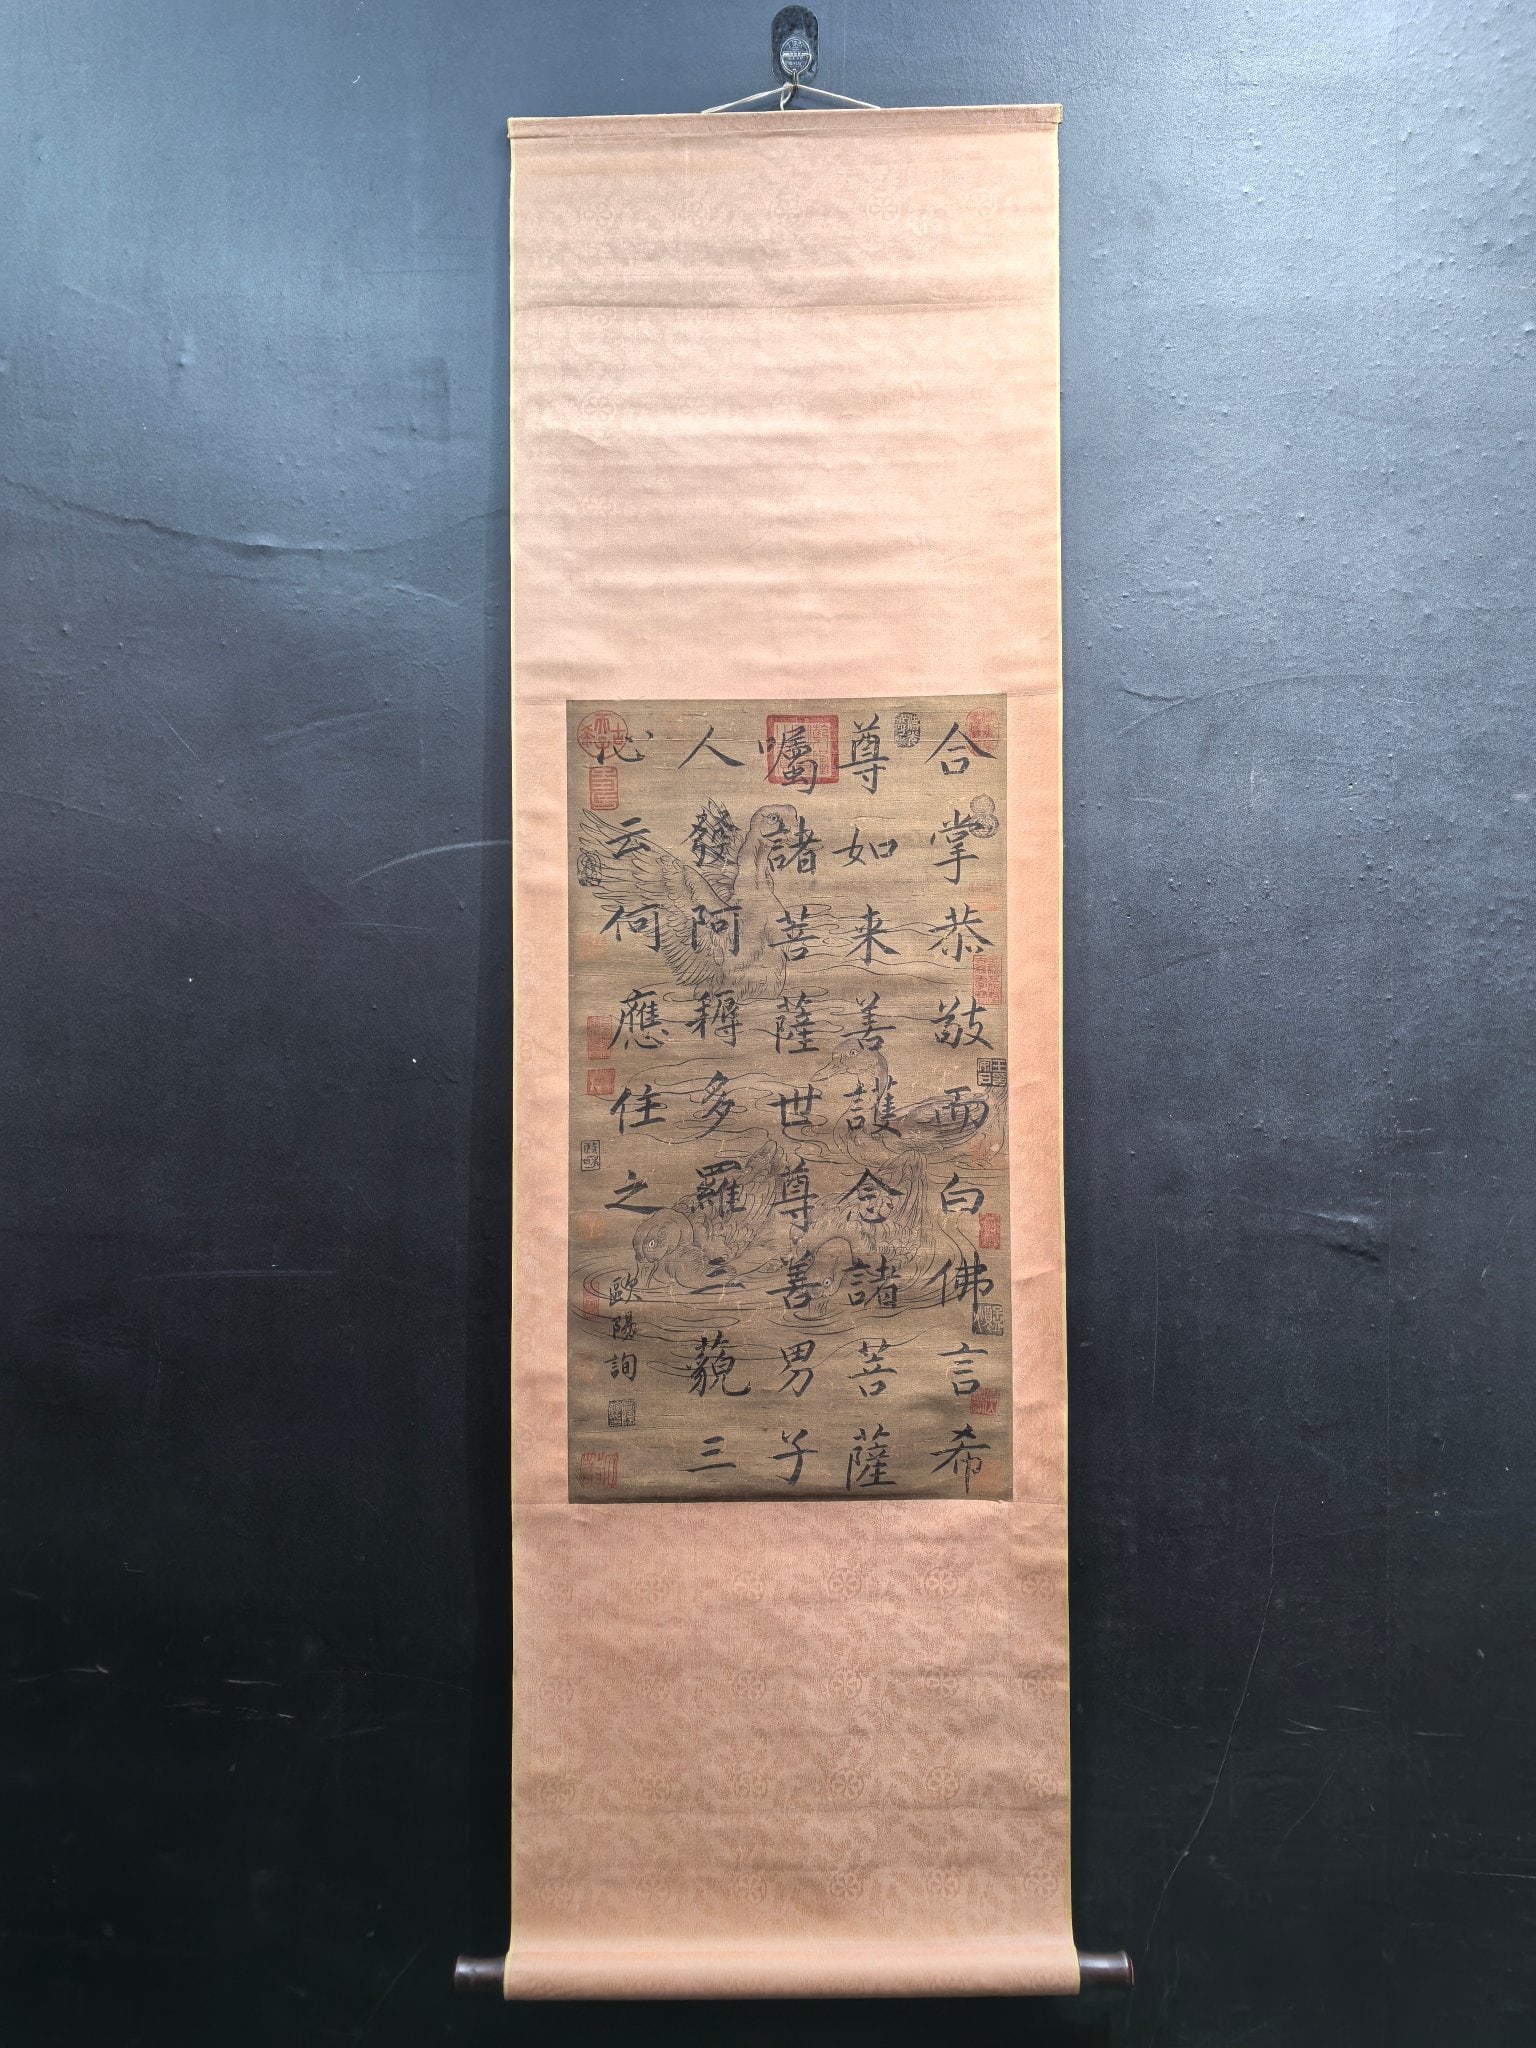 合掌恭敬而白佛言希
尊如来善護念諸菩薩
囑諸菩薩世尊善男子
人發阿耨多羅三藐三
心云何應住之
歐陽詢